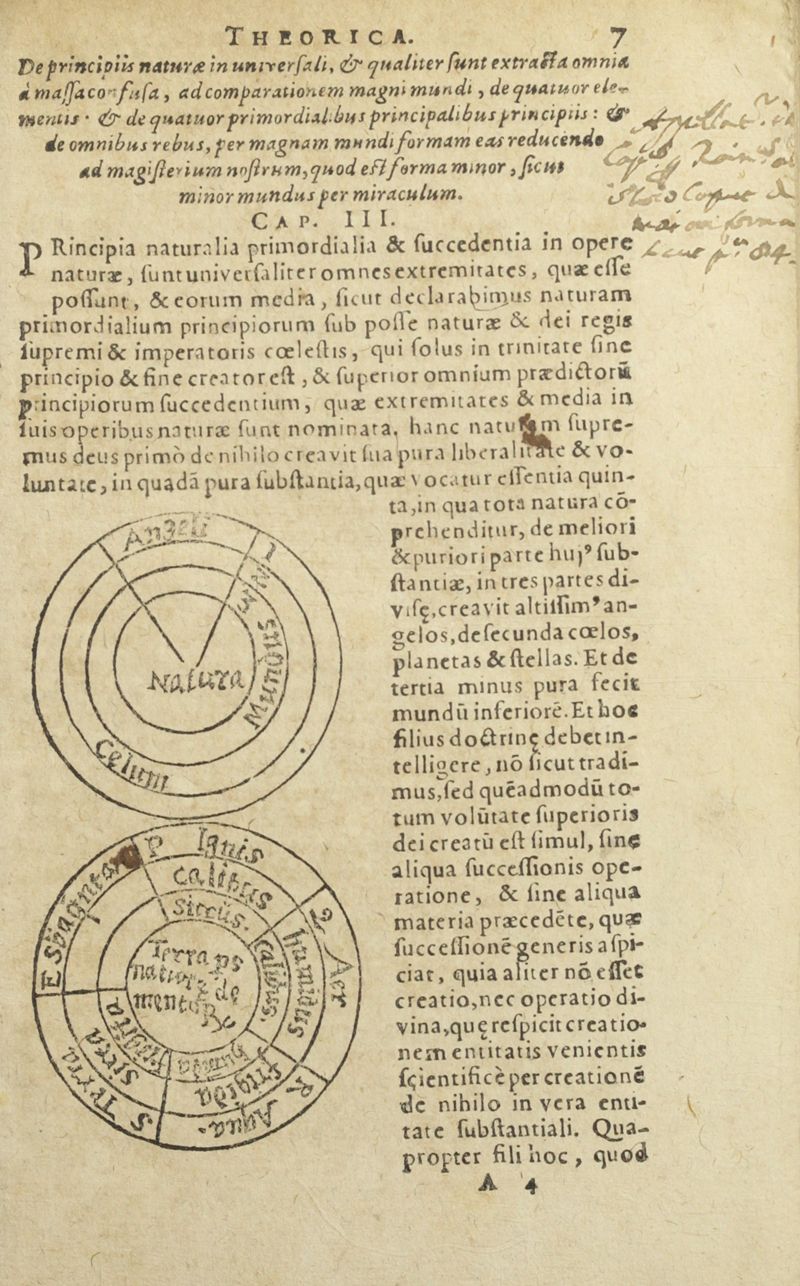 THEORICA. 7
De principiis naturæ in universali, & qualiter sunt extracta omnia
à massa confusa, ad comparationem magni mundi, de quatuor ele-
mentis. & de quatuor primordialibus principalibus principiis: &
de omnibus rebus, per magnam mundi formam eas reducendo
ad magisterium nostrum, quod est forma minor, sicut
minor mundus per miraculum.
CAP. III.
PRincipia naturalia primordialia & succedentia in opere
naturæ, sunt universaliter omnes extremitates, quæ esse
possunt, & eorum media, sicut declarabimus naturam
primordialium principiorum sub posse naturæ & dei regis
supremi & imperatoris cœlestis, qui solus in trinitate sine
principio & fine creator est, & superior omnium prædictorũ
principiorum succedentium, quæ extremitates & media in
suis operibus naturæ sunt nominata, hanc naturam supre-
mus deus primò de nihilo creavit sua pura liberalitate & vo-
luntate, in quadã pura substantia, quæ vocatur essentia quin-
ta, in qua tota natura cõ-
prehenditur, de meliori
& puriori parte huj⁹ sub-
stantiæ, in tres partes di-
visę, creavit altissim⁹ an-
gelos, de secunda cœlos,
planetas & stellas. Et de
tertia minus pura fecit
mundũ inferiorẽ. Et hoc
filius doctrinę debet in-
telligere, nõ sicut tradi-
mus, sed quẽadmodũ to-
tum volũtate superioris
dei creatũ est simul, sine
aliqua successionis ope-
ratione, & sine aliqua
materia præcedẽte, quæ
successionẽ generis aspi-
ciat, quia aliter nõ esset
creatio, nec operatio di-
vina, quę respicit creatio-
nem entitatis venientis
scientificè per creationẽ
de nihilo in vera enti-
tate substantiali. Qua-
propter fili hoc, quod
A 4
Angeli
Mundus
Natura
Celum
Ignis
Calidus
siccus.
Aer
humidus
Calidus.
Terra
natura
de
Aqua.
frigida
Terra
sicca